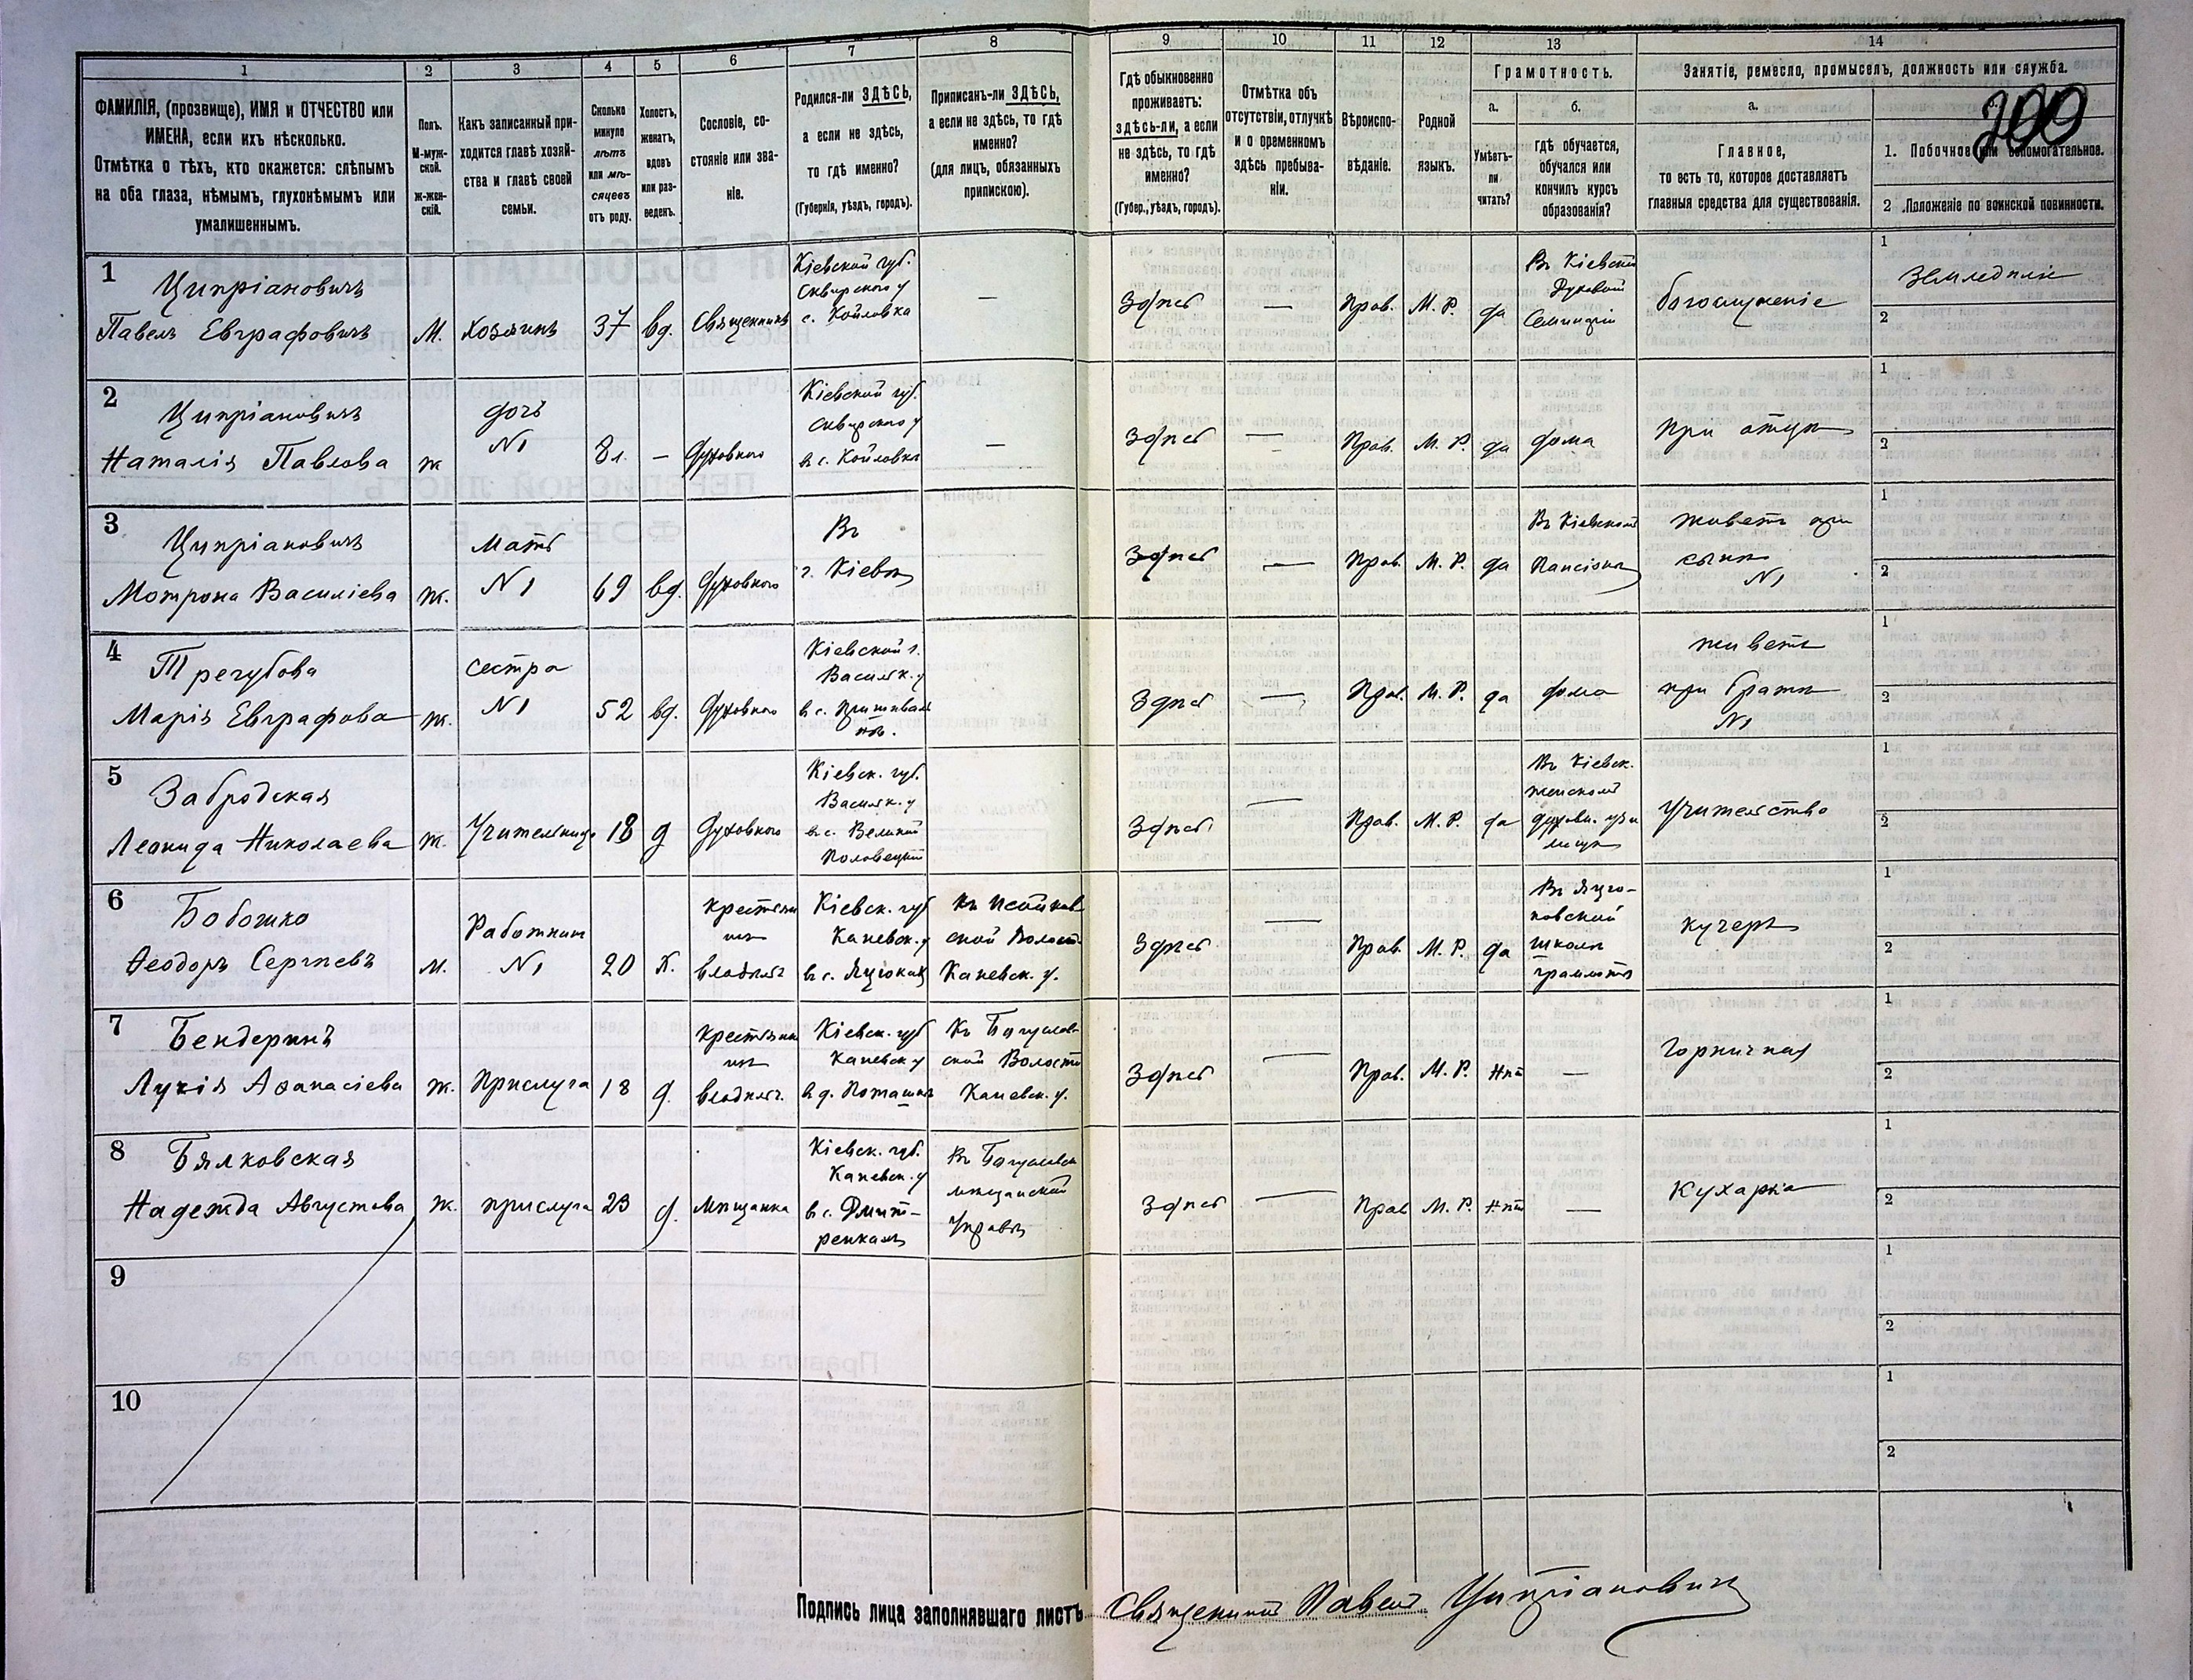 1
2
3
4
5
6
7
8
9
10
11
12
13
14
ФАМИЛІЯ, (прозвище), ИМЯ и ОТЧЕСТВО или
ИМЕНА, если ихъ нѣсколько.
Отмѣтка о тѣхъ, кто окажется: слѣпымъ
на оба глаза, нѣмымъ, глухонѣмымъ или
умалишеннымъ.
Полъ.
М-муж-
ской.
Ж-жен-
скій.
Какъ записанный при-
ходится главѣ хозяй-
ства и главѣ своей
семьи.
Сколько
минуло
лѣтъ
или мѣ-
сяцевъ
отъ роду.
Холостъ,
женатъ,
вдовъ
или раз-
веденъ.
Сословіе, со-
стояніе или зва-
ніе.
Родился-ли ЗДѢСЬ,
а если не здѣсь,
то гдѣ именно?
(Губернія, уѣздъ, городъ).
Приписанъ-ли ЗДѢСЬ,
а если не здѣсь, то гдѣ
именно?
(для лицъ, обязанныхъ
припискою).
Гдѣ обыкновенно
проживаетъ:
здѣсь-ли, а если
не здѣсь, то гдѣ
именно?
(Губер., уѣздъ, городъ).
Отмѣтка объ
отсутствіи, отлучкѣ
и о временномъ
здѣсь пребыва-
ніи.
Вѣроиспо-
вѣданіе.
Родной
языкъ.
Грамотность.
а.
Умѣетъ-
ли
читать?
б.
гдѣ обучается,
обучался или
кончилъ курсъ
образованія?
Занятіе, ремесло, промыселъ, должность или служба.
а.
Главное,
то есть то, которое доставляетъ
главныя средства для существованія.
200
1. Побочное или вспомогательное.
2. Положеніе по воинской повинности.
1
Ципріановичъ
Павелъ Евграфовичъ
М.
Хозяинъ
37
вд.
Священникъ
Кіевской губ.
Сквирского у
с. Койловка
—
Здѣсь
—
Прав.
М. Р.
да
Въ Кіевской
Духовной
Семинаріи
богослуженіе
1
Земледѣліе
2
2
Ципріановичъ
Наталія Павлова
ж
дочь
№1
8 л.
—
Духовного
Кіевской губ.
Сквирского у
въ с. Койловка
—
Здѣсь
—
Прав.
М. Р.
да
дома
при отцѣ
1
2
3
Ципріановичъ
Мотрона Василіева
ж.
Мать
№1
69
вд.
Духовного
Въ
г. Кіевѣ
Здѣсь
—
Прав.
М. Р.
да
Въ Кіевскомъ
Пансіонѣ
живетъ при
сынѣ
№1
1
2
4
Трегубова
Марія Евграфова
ж.
сестра
№1
52
вд.
Духовного
Кіевской г.
Васильк. у
Здѣсь
—
Прав.
М. Р.
да
дома
живетъ
при братѣ
№1
1
2
5
Забродская
Леонида Николаева
ж.
Учительница
18
д
Духовного
Кіевск. губ.
Васильк. у
въ с. Великой
Половецкой
Здѣсь
—
Прав.
М. Р.
да
Въ Кіевск.
женскомъ
духовн. учи
лищѣ
Учительство
1
2
6
Бобошко
Ѳеодоръ Сергѣевъ
м.
Работникъ
№1
20
Х.
крестьян
инъ
владѣлч
Кіевск. губ
Каневск. у
въ с. Яцюкахъ
Волост.
Каневск. у.
Здѣсь
—
Прав.
М. Р.
да
Въ Яцю-
ковской
школѣ
грамоты
кучеръ
1
2
7
Бендеринъ
Лукія Аѳанасіева
ж.
Прислуга
18
д.
крестьян
инъ
владѣлч.
Кіевск. губ
Каневск у
въ д. Поташня
Къ Богуслав-
ской Волости
Каневск. у.
Здѣсь
—
Прав.
М. Р.
Нѣтъ
—
Горничная
1
2
8
Бялковская
Надежда Августова
ж.
прислуга
23
д.
Мѣщанка
Кіевск. губ.
Каневск. у
въ с. Дмит-
ренкахъ
Въ Богуславск
мѣщанской
Управѣ
Здѣсь
—
Прав
М. Р.
Нѣтъ
—
Кухарка
1
2
9
1
2
10
1
2
Подпись лица заполнявшаго листъ Священникъ Павелъ Ципріановичъ